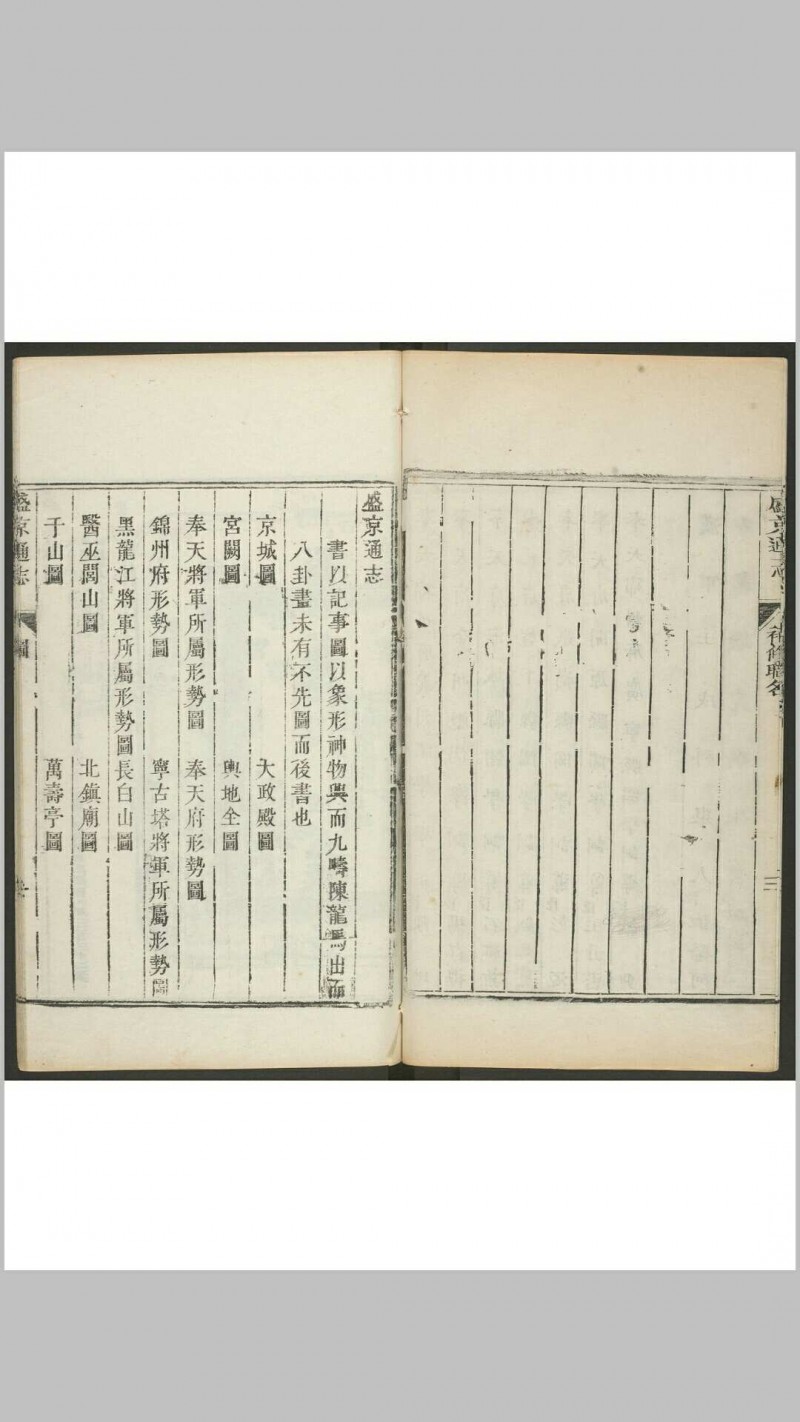 盛京通志
補修職名
盛京通志
書以記事圖以象形神物興而九疇陳龍馬出而
八卦畫未有不先圖而後書也
京城圖 大政殿圖
宮闕圖 輿地全圖
奉天將軍所屬形勢圖 奉天府形勢圖
錦州府形勢圖 寧古塔將軍所屬形勢圖
黑龍江將軍所屬形勢圖 長白山圖
醫巫閭山圖 北鎮廟圖
千山圖 萬壽亭圖
盛京通志
圖